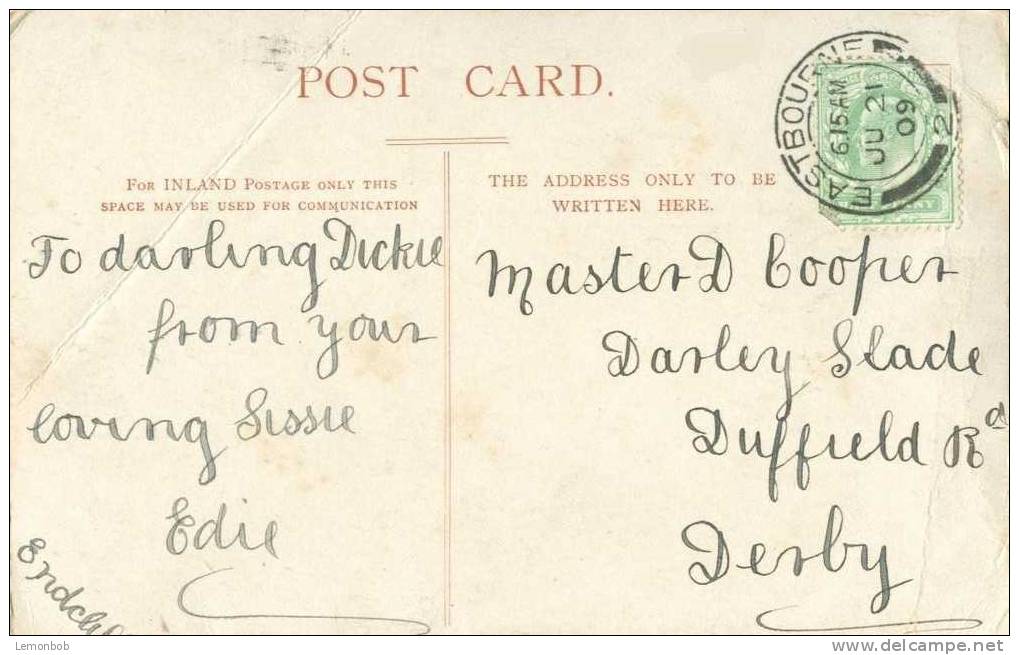 POST CARD.
EASTBOURNE
6.15 AM
JU 21
09
2
FOR INLAND POSTAGE ONLY THIS
SPACE MAY BE USED FOR COMMUNICATION
THE ADDRESS ONLY TO BE
WRITTEN HERE.
To darling Dickie
from your
loving Sissie
Edie
Master D Cooper
Darley Slade
Duffield Rd
Derby
Lemonbob
www.delcampe.net